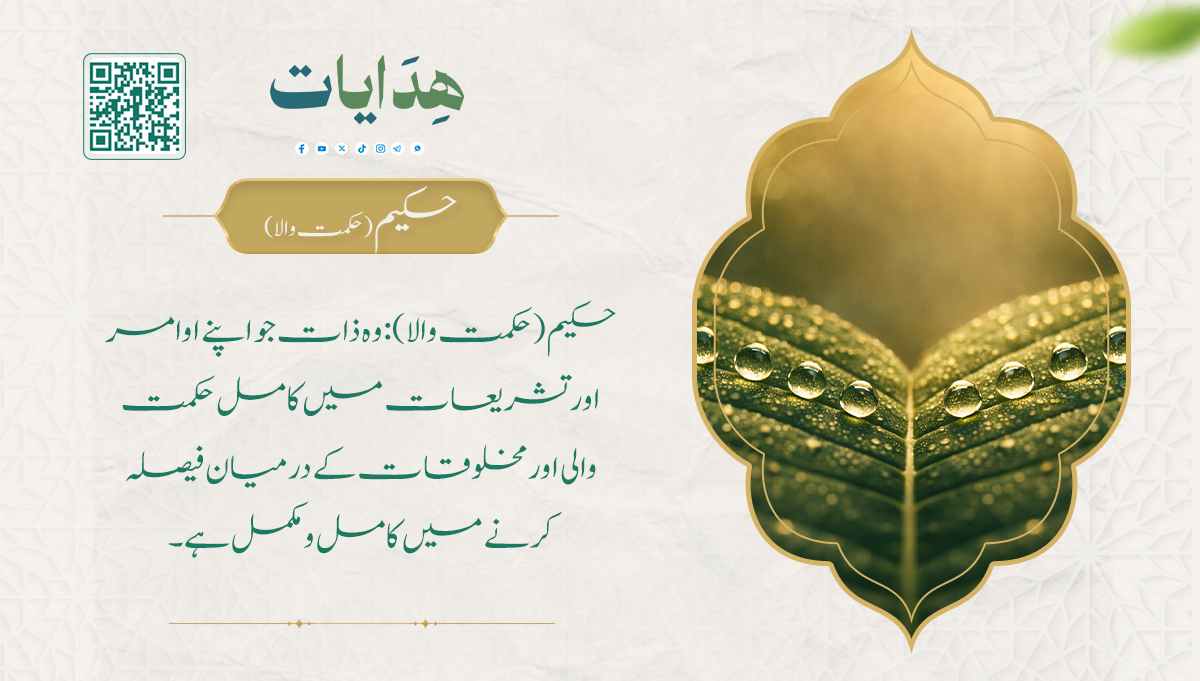 هِدَايات
حکیم (حکمت والا)
حکیم (حکمت والا): وہ ذات جو اپنے اوامر
اور تشریعات میں کامل حکمت
والی اور مخلوقات کے درمیان فیصلہ
کرنے میں کامل و مکمل ہے۔